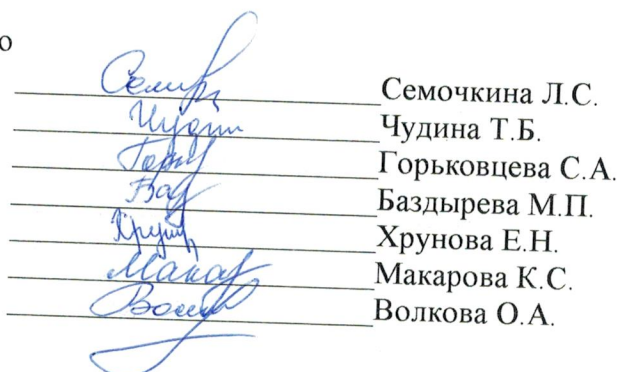 о
Семочкина Л.С.
Чудин Чудина Т.Б.
Горьковцева С.А.
Баздырева М.П.
Хрунова Е.Н.
Макар Макарова К.С.
Волкова О.А.